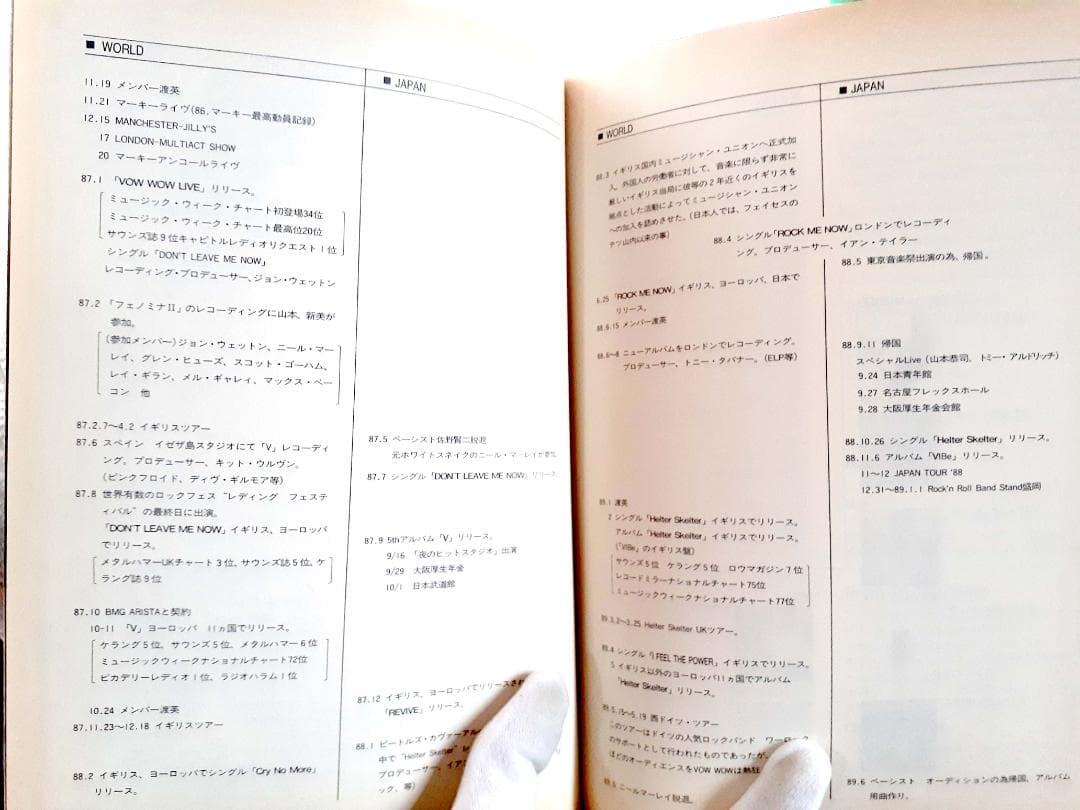 ■ WORLD
11.19 メンバー渡英
11.21 マーキーライヴ(86.マーキー最高動員記録)
12.15 MANCHESTER-JILLY'S
17 LONDON-MULTIACT SHOW
20 マーキーアンコールライヴ
87.1 「VOW WOW LIVE」リリース。
ミュージック・ウィーク・チャート初登場34位
ミュージック・ウィーク・チャート最高位20位
サウンズ誌9位キャピトルレディオリクエスト1位
シングル「DON'T LEAVE ME NOW」
レコーディング・プロデューサー、ジョン・ウェットン
87.2 「フェノミナII」のレコーディングに山本、新美が
参加。
(参加メンバー)ジョン・ウェットン、ニール・マー
レイ、グレン・ヒューズ、スコット・ゴーハム、
レイ・ギラン、メル・ギャレイ、マックス・ベー
コン 他
87.2.7〜4.2 イギリスツアー
87.6 スペイン イゼザ島スタジオにて「V」レコーディ
ング。プロデューサー、キット・ウルヴン。
(ピンクフロイド、ディヴ・ギルモア等)
87.8 世界有数のロックフェス“レディング フェステ
ィバル”の最終日に出演。
「DON'T LEAVE ME NOW」イギリス、ヨーロッパ
でリリース。
メタルハマーUKチャート3位、サウンズ誌5位、ケ
ラング誌9位
87.10 BMG ARISTAと契約
10-11 「V」ヨーロッパ 11ヵ国でリリース。
ケラング5位、サウンズ5位、メタルハマー6位
ミュージックウィークナショナルチャート72位
ピカデリーレディオ1位、ラジオハラム1位
10.24 メンバー渡英
87.11.23〜12.18 イギリスツアー
88.2 イギリス、ヨーロッパでシングル「Cry No More」
リリース。
■ JAPAN
87.5 ベーシスト佐野賢二脱退
元ホワイトスネイクのニール・マーレイが参加
87.7 シングル「DON'T LEAVE ME NOW」リリース
87.9 5thアルバム「V」リリース。
9/16 「夜のヒットスタジオ」出演
9/29 大阪厚生年金
10/1 日本武道館
87.12 イギリス、ヨーロッパでリリースされ
「REVIVE」リリース。
88.1 ビートルズ・カヴァーアル
中で“Helter Skelter”レ
プロデューサー、イアン
ック、等)
■ WORLD
88.3 イギリス国内ミュージシャン・ユニオンへ正式加
入。外国人の労働者に対して、音楽に限らず非常に
厳しいイギリス当局に彼等の2年近くのイギリスを
拠点とした活動によってミュージシャン・ユニオン
への加入を認めさせた。(日本人では、フェイセスの
テツ山内以来の事)
88.4 シングル「ROCK ME NOW」ロンドンでレコーディ
ング。プロデューサー、イアン・テイラー
6.25 「ROCK ME NOW」イギリス、ヨーロッパ、日本で
リリース。
88.6.15 メンバー渡英
88.6〜8 ニューアルバムをロンドンでレコーディング。
プロデューサー、トニー・タバナー。(ELP等)
89.1 渡英
2 シングル「Helter Skelter」イギリスでリリース。
アルバム「Helter Skelter」イギリスでリリース。
(「VIBe」のイギリス盤)
サウンズ5位 ケラング5位 ロウマガジン7位
レコードミラーナショナルチャート75位
ミュージックウィークナショナルチャート77位
89.3.2〜3.25 Helter Skelter UKツアー。
89.4 シングル「I FEEL THE POWER」イギリスでリリース。
5 イギリス以外のヨーロッパ11ヵ国でアルバム
「Helter Skelter」リリース。
89.5.15〜5.19 西ドイツ・ツアー
このツアーはドイツの人気ロックバンド
のサポートとして行われたものであったが、
ほどのオーディエンスをVOW WOWは熱狂
89.5 ニールマーレイ脱退。
■ JAPAN
88.5 東京音楽祭出演の為、帰国。
88.9.11 帰国
スペシャルLive (山本恭司、トミー・アルドリッチ)
9.24 日本青年館
9.27 名古屋フレックスホール
9.28 大阪厚生年金会館
88.10.26 シングル「Helter Skelter」リリース。
88.11.6 アルバム「VIBe」リリース。
11〜12 JAPAN TOUR '88
12.31〜89.1.1 Rock'n Roll Band Stand盛岡
89.6 ベーシスト オーディションの為帰国、アルバム
用曲作り。